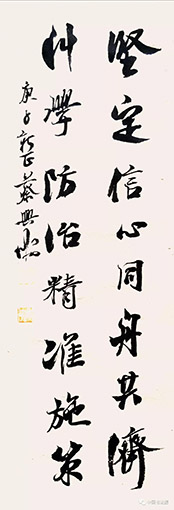 堅定信心同舟共濟
科學防治精準施策
庚子新正蔡興